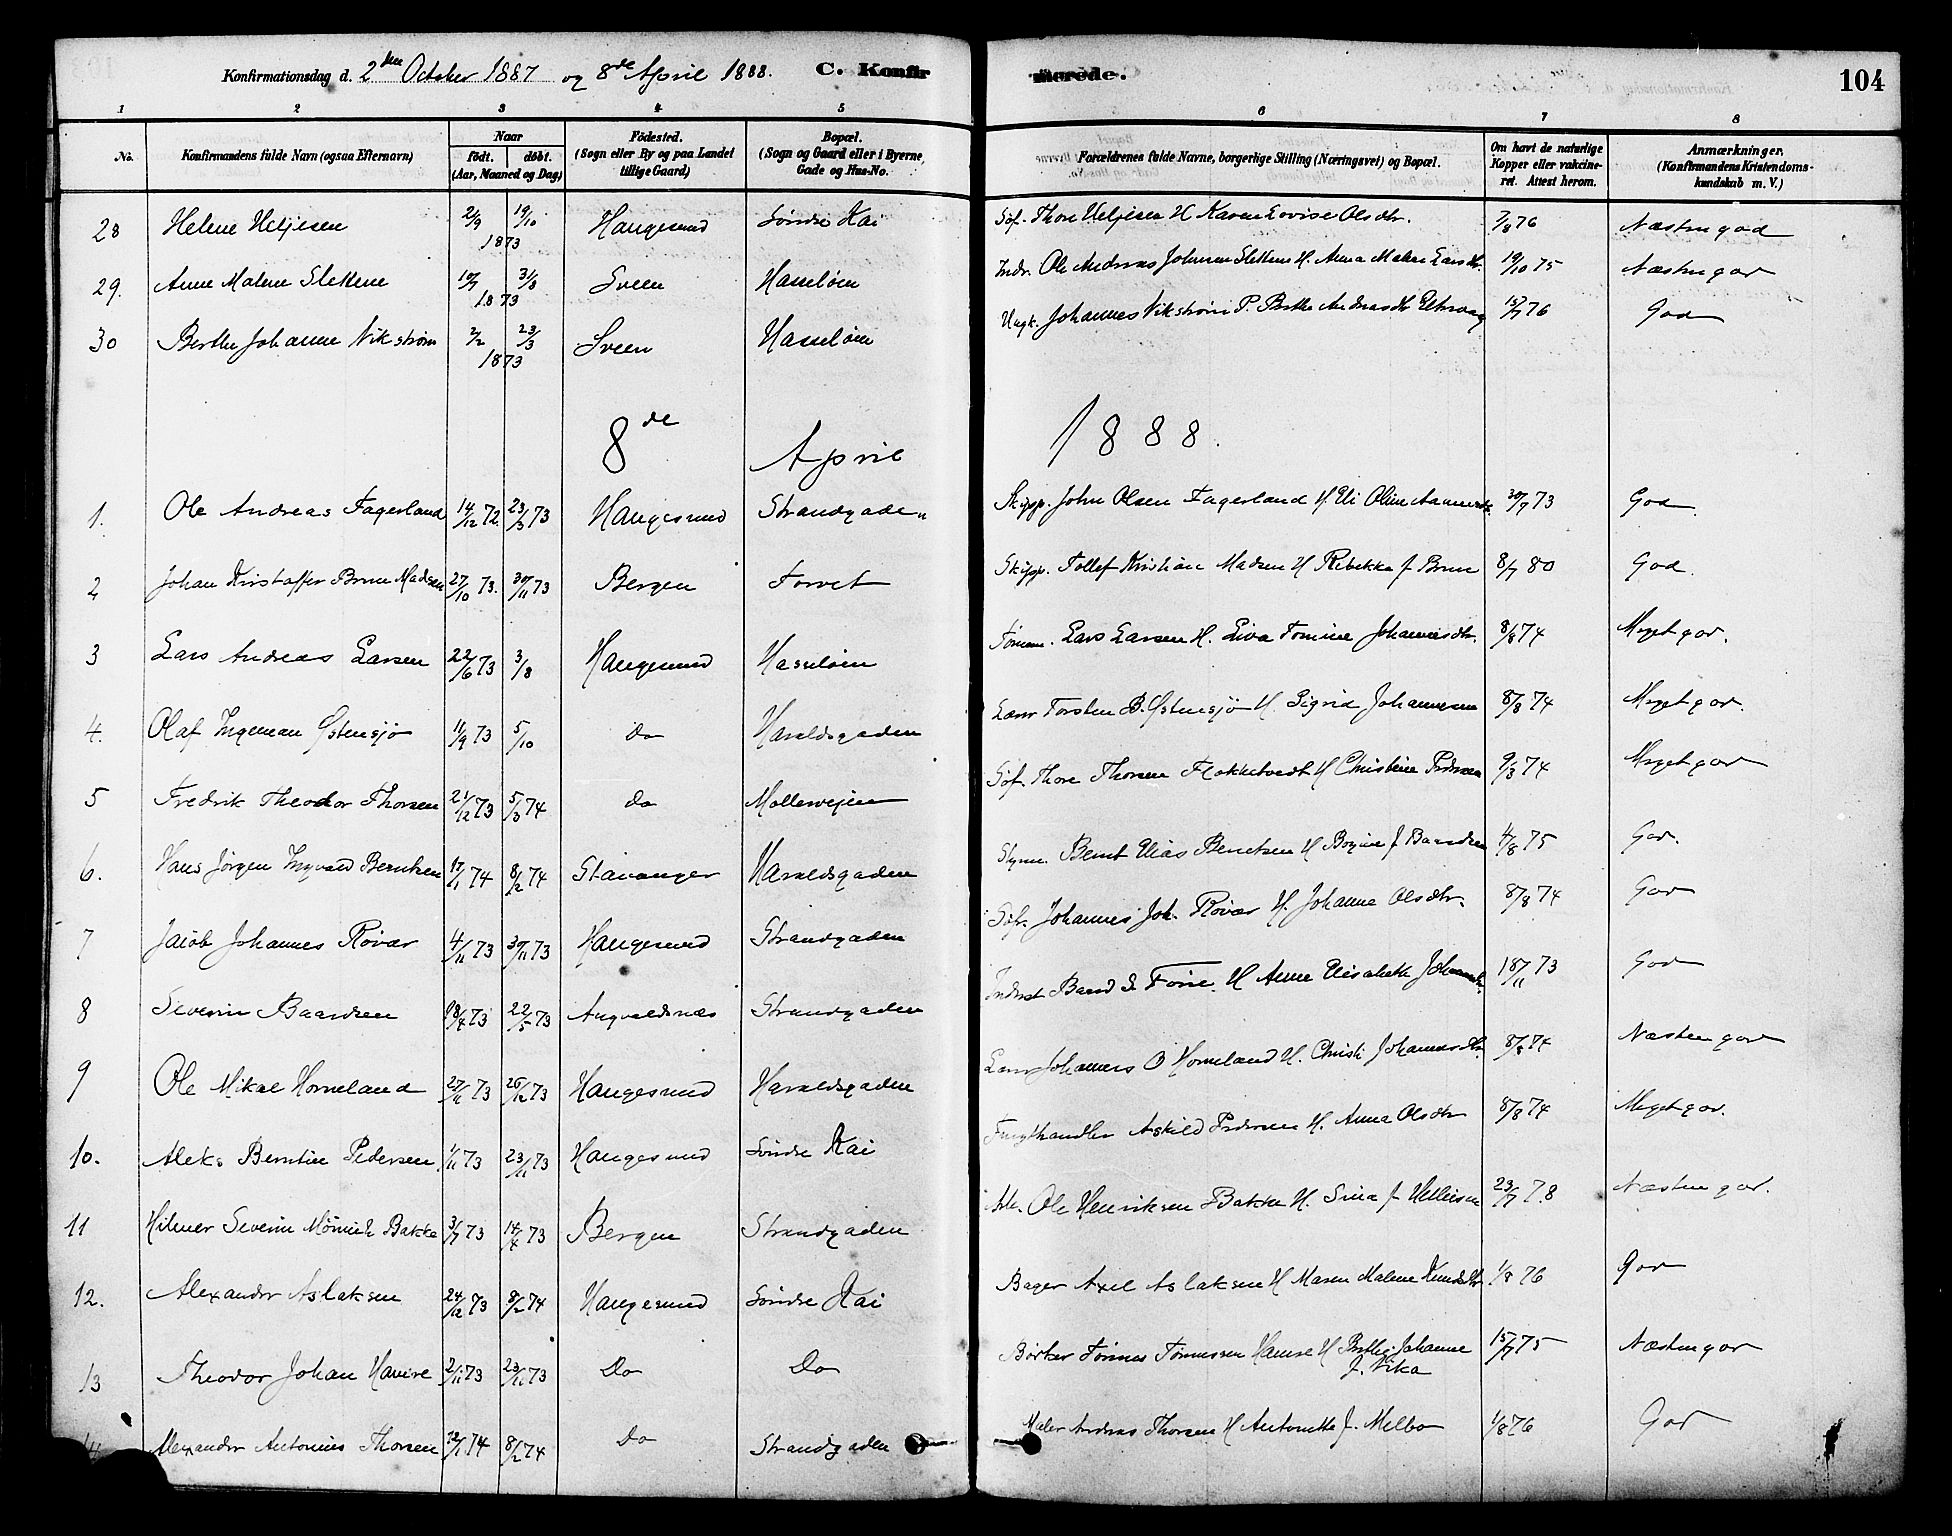 Konfirmationsdag d. 2den October 1887 og 8de April 1888. C. Konfirmerede. 104
1 2 3 4 5 6 7 8
No. Konfirmandens fulde Navn (ogsaa Efternavn) Naar født. døbt. (Aar, Maaned og Dag) Födested. (Sogn eller By og paa Landet tillige Gaard) Bopæl. (Sogn og Gaard eller i Byerne, Gade og Hus-No. Forældrenes fulde Navne, borgerlige Stilling (Næringsvei) og Bopæl. Om havt de naturlige Kopper eller vakcineret. Attest herom. Anmærkninger, (Konfirmandens Kristendomskundskab m. V.)
28 Helene Heljesen 2/9 19/10 1873 Haugesund Søndre Kai Søf. Thore Heljesen H Karen Lovise Olsdtr. 7/8 76 Næsten god
29. Anne Malene Slettene 10/7 31/8 1873 Sveen Hasseløen Indr. Ole Andreas Johnsen Slettene H. Anna Malene Larsdtr. 19/10 75 Næsten god
30 Berthe Johanne Vikstrøm 2/2 23/3 1873 Sveen Hasseløen Ungk. Johannes Vikstrøm P. Berthe Andreasdtr 15/7 76 God
8de April 1888.
1. Ole Andreas Fagerland 14/12 72 23/3 73 Haugesund Strandgaden Skipp. John Olsen Fagerland H Eli Oline 30/7 73 God
2 Johan Kristoffer Brun Madsen 27/10 73. 30/11 73 Bergen Torvet Skipp. Tollef Kristian Madsen H Rebekka f Brun 8/7 80 God.
3 Lars Andreas Larsen 22/6 73 3/8 Haugesund Hasseløen Tømm. Lars Larsen H. Tomine Johannesdtr. 8/8 74 Meget god.
4. Olaf Ingeman Østensjø 11/9 73 5/10 do Haraldsgaden Torsten B. Østensjø H. Sigrid Johannesen 8/8 74 Meget god.
5 Fredrik Theodor Thorsen 21/12 73 5/3 74 do Møllerveien Søf. Thore Thorsen Flokketvedt H Christine Pedersen 9/3 74 Meget god
6. Hans Jørgen Ingvald Berntsen 74 8/2 74 Stavanger Haraldsgaden Styrm. Bernt Elias Berntsen H f Baardsen 4/8 75 God.
7 Jacob Johannes Røvær 4/11 73 30/11 73 Haugesund Strandgaden Søf. Johannes Joh. Røvær H. Johanne Olsdtr. 8/8 74 God
8 Severin Baardsen 18/4 73 22/5 73 Augvaldsnæs Strandgaden Inderst Baard S. H Anne Elisabeth 18/11 73 God
9 Ole Mikal Horneland 27/11 73 26/12 73 Haugesund Haraldsgaden Johannes O Horneland H. Christi Johannesdtr. 8/8 74 Næsten god
10. Aleks Berntin Pedersen 1/11 73 23/11 73 Haugesund Søndre Kai Frugthandler Askild Pedersen H. Anna Olsdtr 8/8 74 Meget god.
11 Hilmer Severin Bakke 3/1 73 14/4 73 Bergen Strandgaden Arb. Ole Henriksen Bakke H. Sina f Hellesen 23/7 78 Næsten god.
12. Alexander Aslaksen 24/12 73 8/2 74 Haugesund Søndre Kai Bager Axel Aslaksen H Maren Malene Knudsdtr 1/8 76 God
13 Theodor Johan Havire 2/11 73 23/11 73 Do Do Tønnes Tønnessen H Berthe Johanne f. Vika 15/7 75 Næsten god
Alexander Antonius Thorsen 12/1 74 8/2 74 Do Strandgaden Maler Andreas Thorsen H Antonette f. Melbo 1/8 76 God